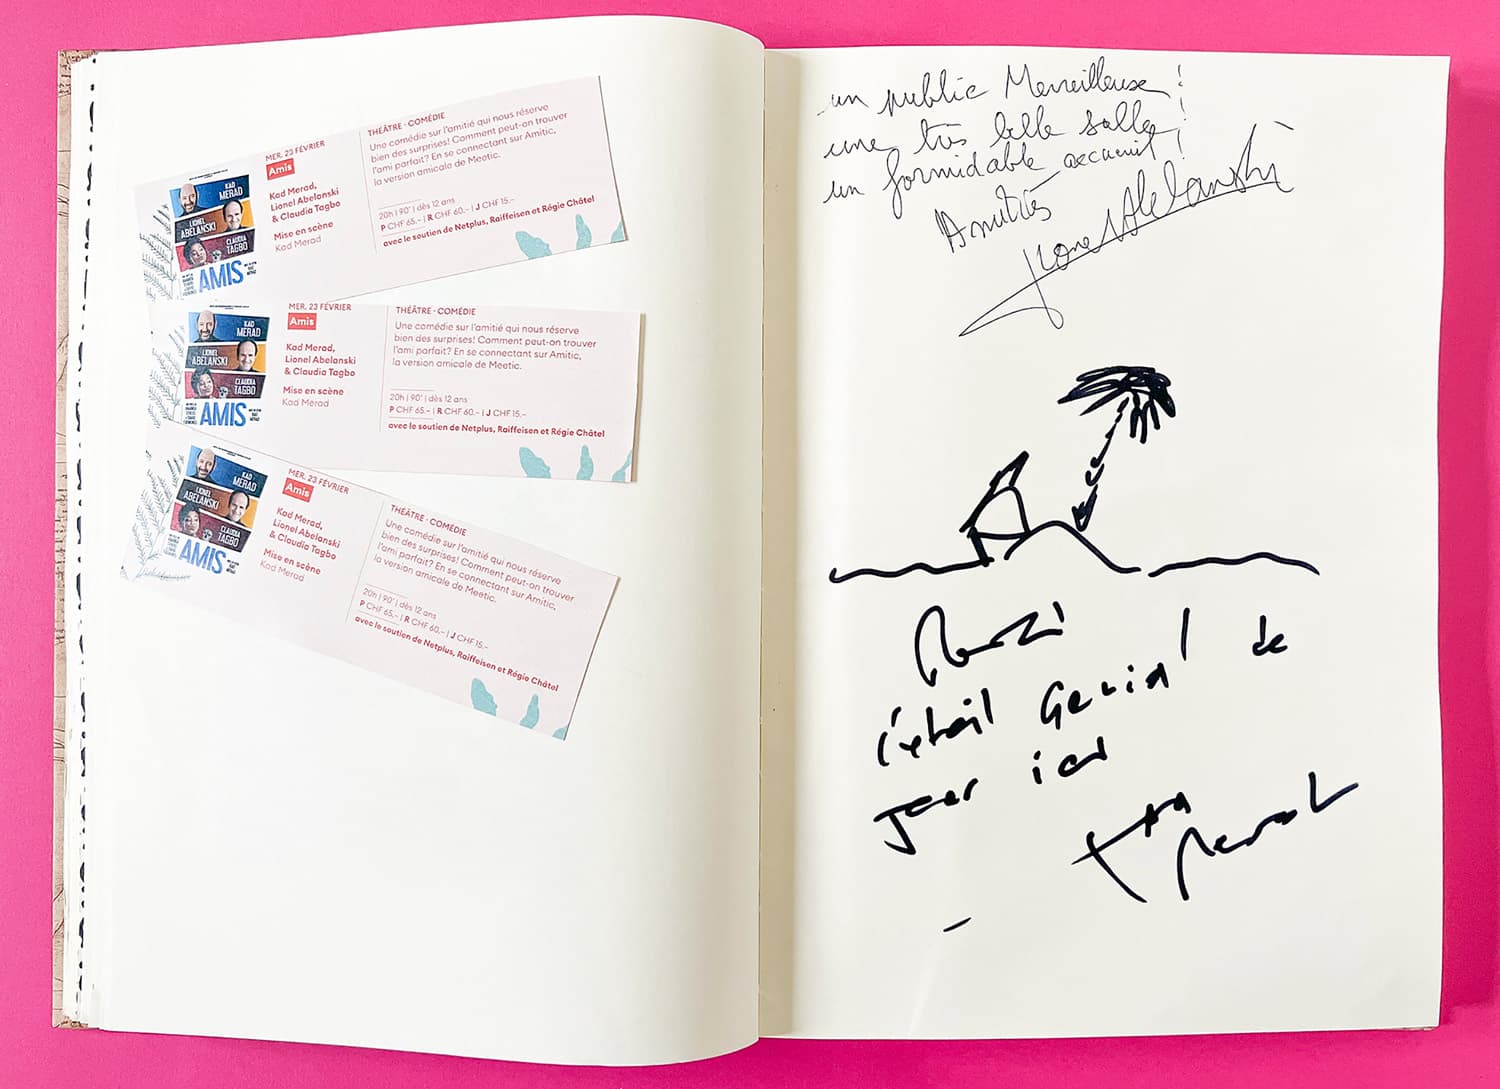 MER. 23 FÉVRIER
Amis
Kad Merad,
Lionel Abelanski
& Claudia Tagbo
Mise en scène
Kad Merad
KAD
MERAD
LIONEL
ABELANSKI
CLAUDIA
TAGBO
AMIS
THÉÂTRE · COMÉDIE
Une comédie sur l'amitié qui nous réserve
bien des surprises! Comment peut-on trouver
l'ami parfait? En se connectant sur Amitic,
la version amicale de Meetic.
20h | 90' | dès 12 ans
P CHF 65.– | R CHF 60.– | J CHF 15.–
avec le soutien de Netplus, Raiffeisen et Régie Châtel
MER. 23 FÉVRIER
Amis
Kad Merad,
Lionel Abelanski
& Claudia Tagbo
Mise en scène
Kad Merad
KAD
MERAD
LIONEL
ABELANSKI
CLAUDIA
TAGBO
AMIS
THÉÂTRE · COMÉDIE
Une comédie sur l'amitié qui nous réserve
bien des surprises! Comment peut-on trouver
l'ami parfait? En se connectant sur Amitic,
la version amicale de Meetic.
20h | 90' | dès 12 ans
P CHF 65.– | R CHF 60.– | J CHF 15.–
avec le soutien de Netplus, Raiffeisen et Régie Châtel
MER. 23 FÉVRIER
Amis
Kad Merad,
Lionel Abelanski
& Claudia Tagbo
Mise en scène
Kad Merad
KAD
MERAD
LIONEL
ABELANSKI
CLAUDIA
TAGBO
AMIS
THÉÂTRE · COMÉDIE
Une comédie sur l'amitié qui nous réserve
bien des surprises! Comment peut-on trouver
l'ami parfait? En se connectant sur Amitic,
la version amicale de Meetic.
20h | 90' | dès 12 ans
P CHF 65.– | R CHF 60.– | J CHF 15.–
avec le soutien de Netplus, Raiffeisen et Régie Châtel
un public Merveilleux!
une très belle salle!
un formidable accueil!
Amitiés
Abelanski
Merci
c'était Genial de
jouer ici
Kad Merad